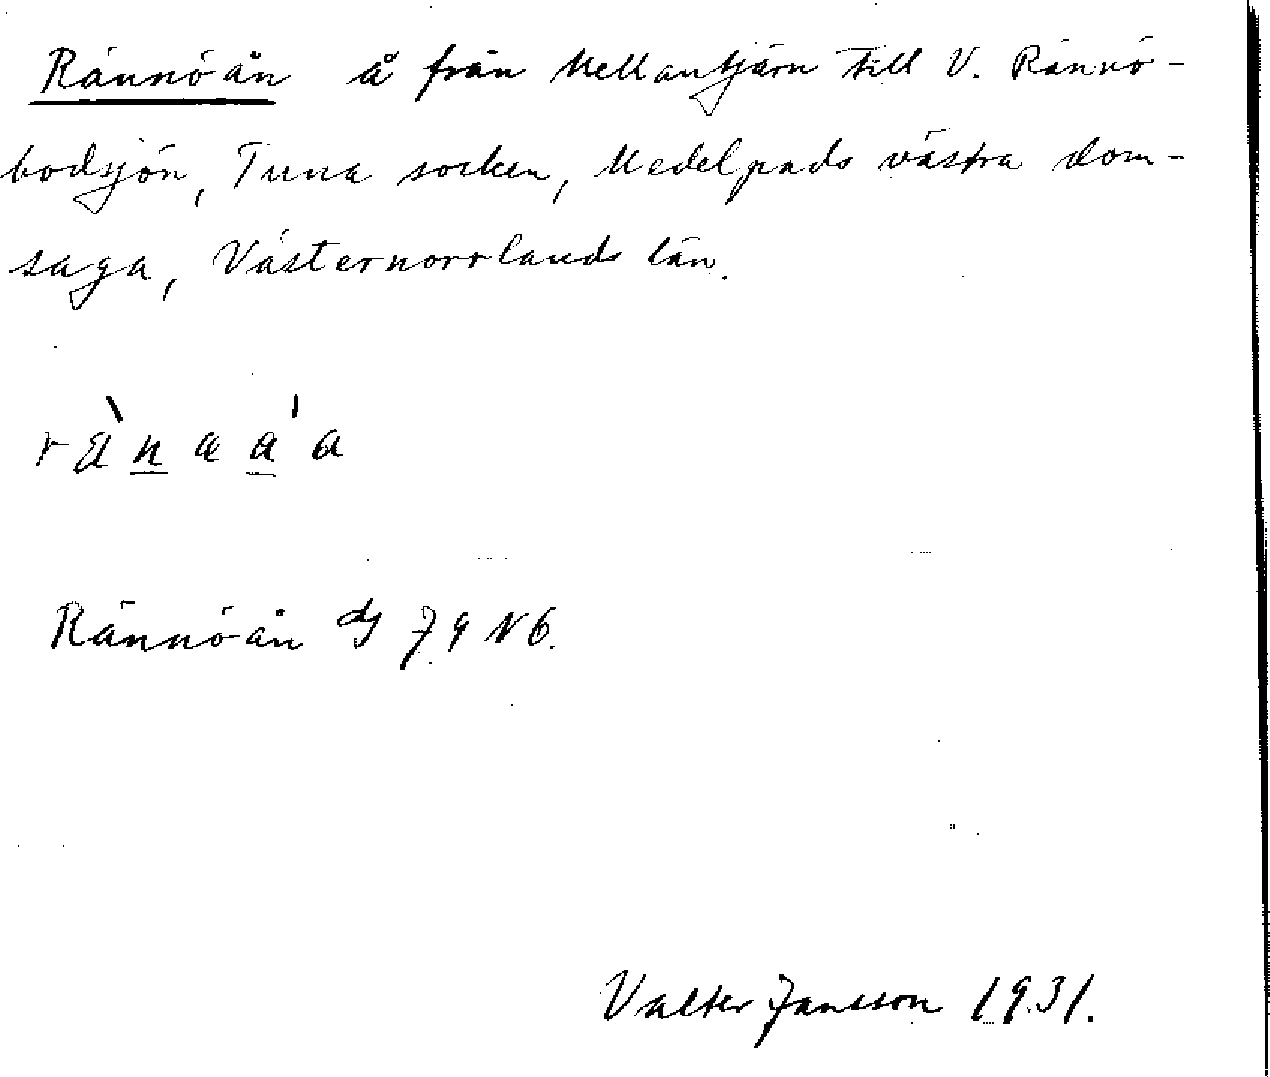 Rännöån å från Mellantjärn till V. Rännö-
bodsjön, Tuna socken, Medelpads västra dom-
saga, Västernorrlands län.
Rännöån
Valter Jansson 1931.